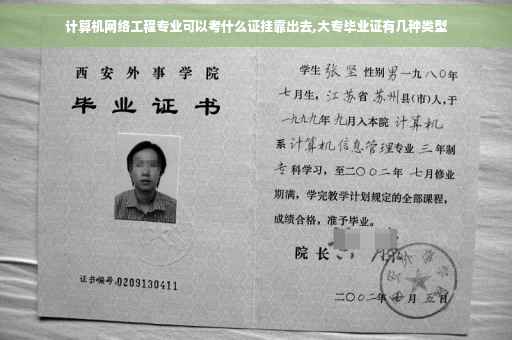 计算机网络工程专业可以考什么证挂靠出去,大专毕业证有几种类型
西安外事学院
毕业证书
证书编号:0209130411
学生 张坚 性别 男 一九八〇年
七月生, 江苏省 苏州县(市)人,于
一九九九年 九月入本院 计算机
系 计算机信息管理专业 三 年制
专 科学习, 至二〇〇二年 七月修业
期满, 学完教学计划规定的全部课程,
成绩合格, 准予毕业。
院 长
二〇〇二年 七 月 五 日